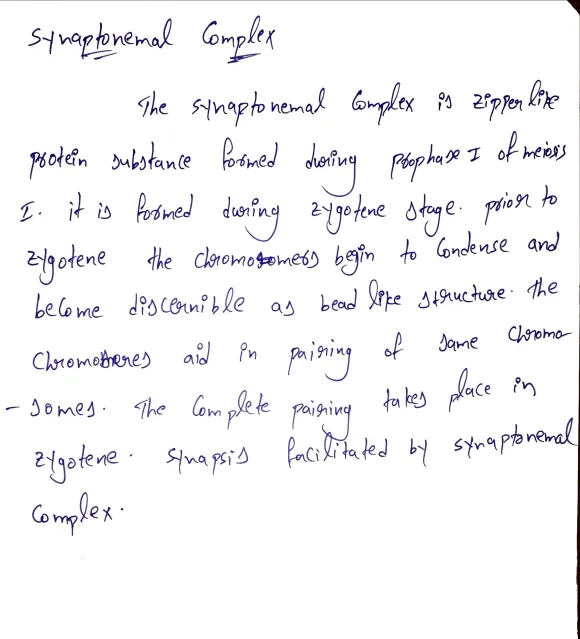 Synaptonemal Complex
The synaptonemal Complex is zipper like
protein substance formed during prophase I of meiosis
I. it is formed during zygotene stage. prior to
zygotene the chromosomers begin to Condense and
become discernible as bead like structure. The
Chromomeres aid in pairing of same Chromo
- somes. The Complete pairing takes place in
zygotene. Synapsis facilitated by synaptonemal
Complex.